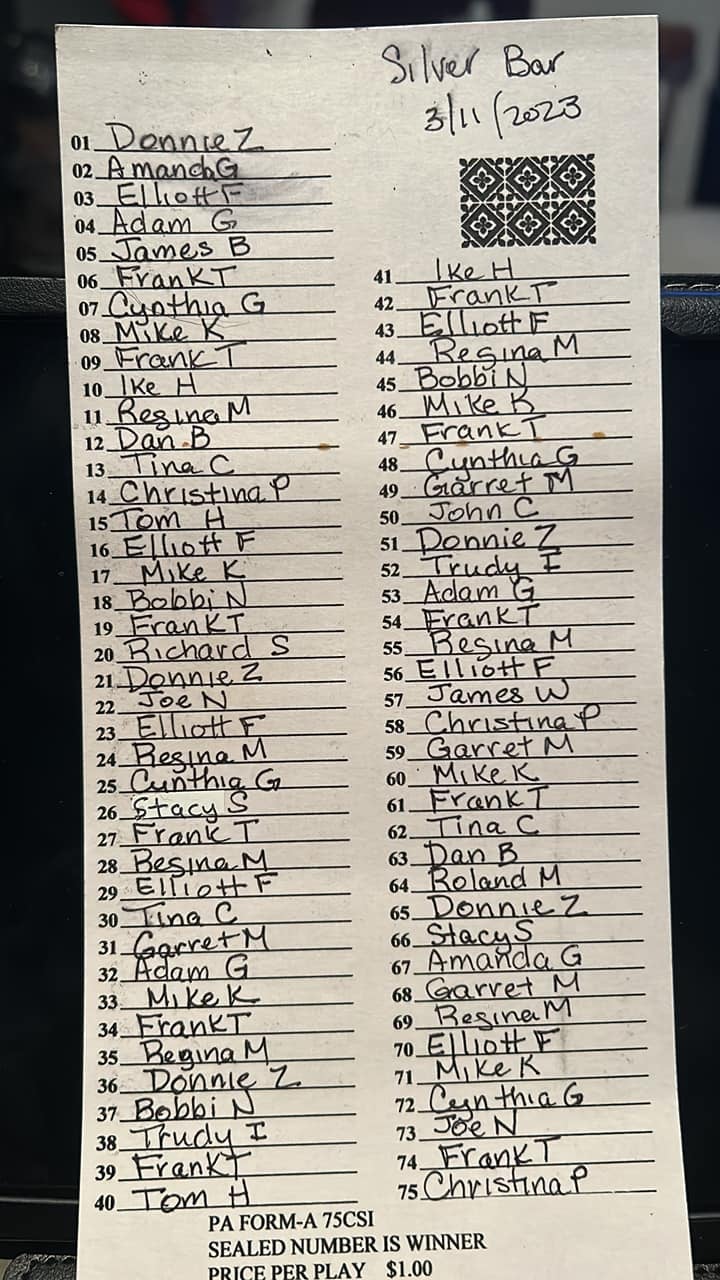 Silver Bar
3/11/2023
01 Donnie Z
02 Amanda G
03 Elliott F
04 Adam G
05 James B
06 Frank T
07 Cynthia G
08 Mike K
09 Frank T
10 Ike H
11 Regina M
12 Dan B
13 Tina C
14 Christina P
15 Tom H
16 Elliott F
17 Mike K
18 Bobbi N
19 Frank T
20 Richard S
21 Donnie Z
22 Joe N
23 Elliott F
24 Regina M
25 Cynthia G
26 Stacy S
27 Frank T
28 Regina M
29 Elliott F
30 Tina C
31 Garret M
32 Adam G
33 Mike K
34 Frank T
35 Regina M
36 Donnie Z
37 Bobbi N
38 Trudy I
39 Frank T
40 Tom H
41 Ike H
42 Frank T
43 Elliott F
44 Regina M
45 Bobbi N
46 Mike K
47 Frank T
48 Cynthia G
49 Garret M
50 John C
51 Donnie Z
52 Trudy I
53 Adam G
54 Frank T
55 Regina M
56 Elliott F
57 James W
58 Christina P
59 Garret M
60 Mike K
61 Frank T
62 Tina C
63 Dan B
64 Roland M
65 Donnie Z
66 Stacy S
67 Amanda G
68 Garret M
69 Regina M
70 Elliott F
71 Mike K
72 Cynthia G
73 Joe N
74 Frank T
75 Christina P
PA FORM-A 75CSI
SEALED NUMBER IS WINNER
PRICE PER PLAY $1.00